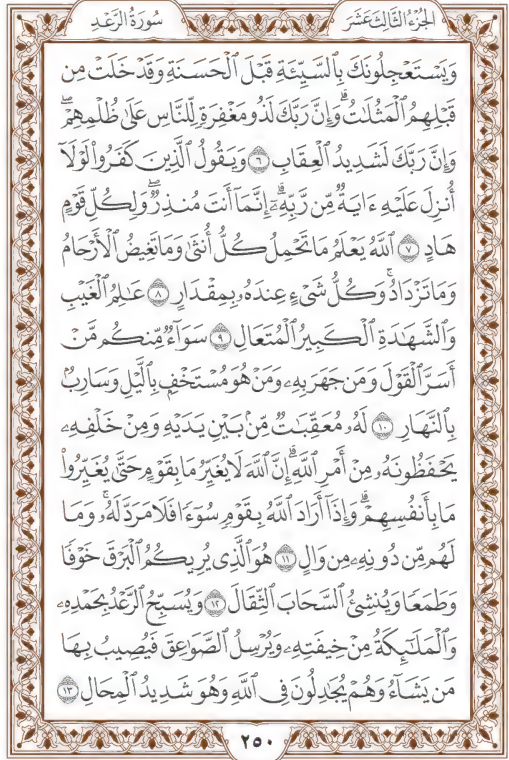 الجُزْءُ الثَّالِثَ عَشَرَ سُورَةُ الرَّعْدِ
وَيَسْتَعْجِلُونَكَ بِٱلسَّيِّئَةِ قَبْلَ ٱلْحَسَنَةِ وَقَدْ خَلَتْ مِن
قَبْلِهِمُ ٱلْمَثُلَٰتُۗ وَإِنَّ رَبَّكَ لَذُو مَغْفِرَةٍ لِّلنَّاسِ عَلَىٰ ظُلْمِهِمْۖ
وَإِنَّ رَبَّكَ لَشَدِيدُ ٱلْعِقَابِ ٦ وَيَقُولُ ٱلَّذِينَ كَفَرُوا۟ لَوْلَآ
أُنزِلَ عَلَيْهِ ءَايَةٌ مِّن رَّبِّهِۦٓۗ إِنَّمَآ أَنتَ مُنذِرٌۖ وَلِكُلِّ قَوْمٍ
هَادٍ ٧ ٱللَّهُ يَعْلَمُ مَا تَحْمِلُ كُلُّ أُنثَىٰ وَمَا تَغِيضُ ٱلْأَرْحَامُ
وَمَا تَزْدَادُۖ وَكُلُّ شَىْءٍ عِندَهُۥ بِمِقْدَارٍ ٨ عَٰلِمُ ٱلْغَيْبِ
وَٱلشَّهَٰدَةِ ٱلْكَبِيرُ ٱلْمُتَعَالِ ٩ سَوَآءٌ مِّنكُم مَّنْ
أَسَرَّ ٱلْقَوْلَ وَمَن جَهَرَ بِهِۦ وَمَنْ هُوَ مُسْتَخْفٍۭ بِٱلَّيْلِ وَسَارِبٌۢ
بِٱلنَّهَارِ ١٠ لَهُۥ مُعَقِّبَٰتٌ مِّنۢ بَيْنِ يَدَيْهِ وَمِنْ خَلْفِهِۦ
يَحْفَظُونَهُۥ مِنْ أَمْرِ ٱللَّهِۗ إِنَّ ٱللَّهَ لَا يُغَيِّرُ مَا بِقَوْمٍ حَتَّىٰ يُغَيِّرُوا۟
مَا بِأَنفُسِهِمْۗ وَإِذَآ أَرَادَ ٱللَّهُ بِقَوْمٍ سُوٓءًا فَلَا مَرَدَّ لَهُۥۚ وَمَا
لَهُم مِّن دُونِهِۦ مِن وَالٍ ١١ هُوَ ٱلَّذِى يُرِيكُمُ ٱلْبَرْقَ خَوْفًا
وَطَمَعًا وَيُنشِئُ ٱلسَّحَابَ ٱلثِّقَالَ ١٢ وَيُسَبِّحُ ٱلرَّعْدُ بِحَمْدِهِۦ
وَٱلْمَلَٰٓئِكَةُ مِنْ خِيفَتِهِۦ وَيُرْسِلُ ٱلصَّوَٰعِقَ فَيُصِيبُ بِهَا
مَن يَشَآءُ وَهُمْ يُجَٰدِلُونَ فِى ٱللَّهِ وَهُوَ شَدِيدُ ٱلْمِحَالِ ١٣
٢٥٠